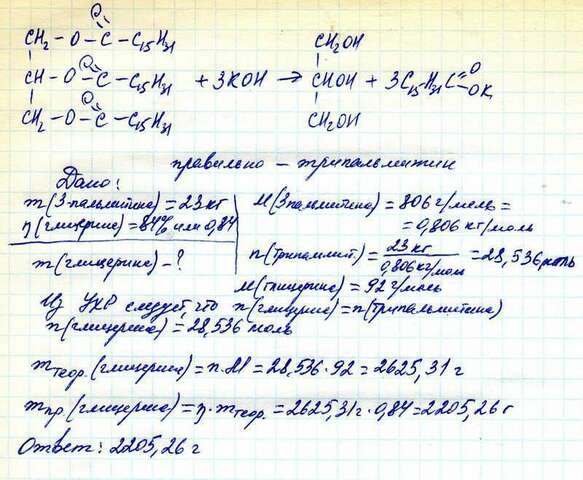 CH₂ - O - C - C₁₅H₃₁
O
CH - O - C - C₁₅H₃₁ + 3KOH → CHOH + 3C₁₅H₃₁C
O
CH₂ - O - C - C₁₅H₃₁
O
CH₂OH
CH₂OH
O
OK
правильно - трипальмитин
Дано:
m(3-пальмитина) = 23 кг
η(глицерина) = 84% или 0,84
m(глицерина) - ?
M(3пальмитина) = 806 г/моль =
= 0,806 кг/моль
n(трипальмит) = 23 кг / 0,806 кг/моль = 28,536 моль
M(глицерина) = 92 г/моль
Из УХР следует, что n(глицерина) = n(трипальмитина)
n(глицерина) = 28,536 моль
mтеор.(глицерина) = n·M = 28,536·92 = 2625,31 г
mпр.(глицерина) = η·mтеор. = 2625,31г·0,84 = 2205,26 г
Ответ: 2205,26 г